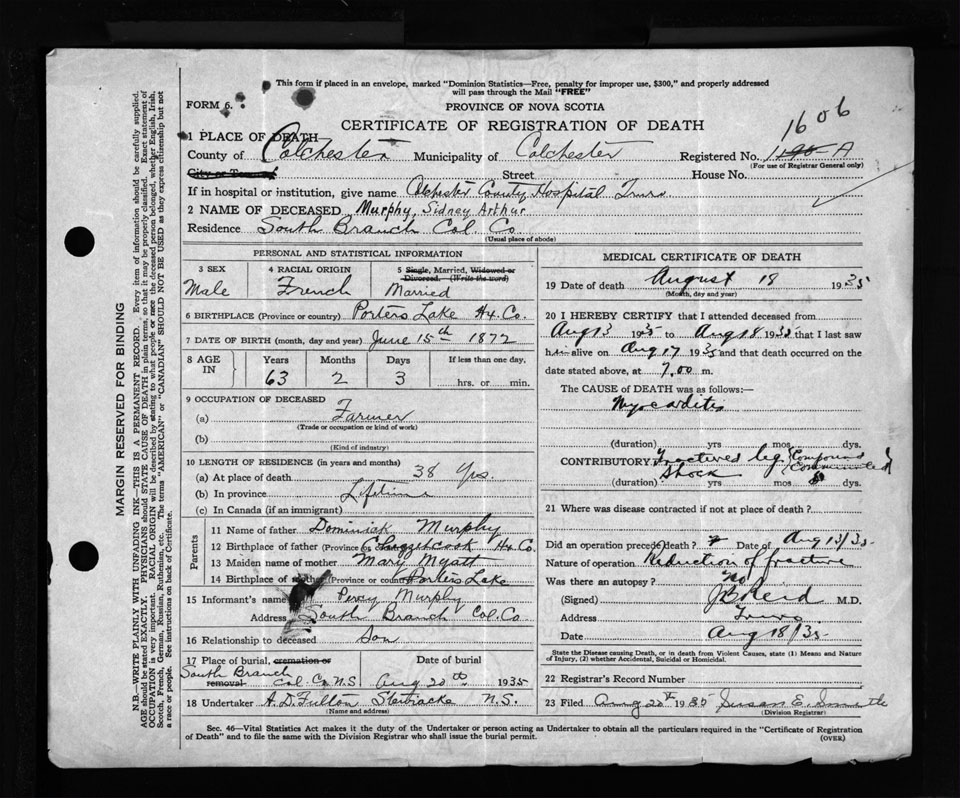 This form if placed in an envelope, marked "Dominion Statistics—Free, penalty for improper use, $300," and properly addressed
will pass through the Mail "FREE"
FORM 6.
PROVINCE OF NOVA SCOTIA
CERTIFICATE OF REGISTRATION OF DEATH
1606
1 PLACE OF DEATH
County of Colchester Municipality of Colchester Registered No. A
(For use of Registrar General only)
City or Town of Street House No.
If in hospital or institution, give name Colchester County Hospital Truro
2 NAME OF DECEASED Murphy, Sidney Arthur
Residence South Branch Col. Co.
(Usual place of abode)
PERSONAL AND STATISTICAL INFORMATION
3 SEX 4 RACIAL ORIGIN 5 Single, Married, Widowed or
Divorced. (Write the word)
Male French Married
6 BIRTHPLACE (Province or country) Porters Lake Hx. Co.
7 DATE OF BIRTH (month, day and year) June 15th 1872
8 AGE IN Years Months Days If less than one day,
63 2 3 hrs. or min.
9 OCCUPATION OF DECEASED
(a) Farmer
(Trade or occupation or kind of work)
(b)
(Kind of industry)
10 LENGTH OF RESIDENCE (in years and months)
(a) At place of death 38 yrs.
(b) In province Lifetime
(c) In Canada (if an immigrant)
Parents
11 Name of father Dominick Murphy
12 Birthplace of father (Province or Chezzetcook Hx. Co.
13 Maiden name of mother Mary Myatt
14 Birthplace of mother (Province or country) Porters Lake
15 Informant's name Percy Murphy
Address South Branch Col. Co.
16 Relationship to deceased Son
17 Place of burial, cremation or removal Date of burial
South Branch Col. Co. N.S Aug 20th 1935
18 Undertaker A. D. Fulton Stewiacke N.S.
(Name and address)
MEDICAL CERTIFICATE OF DEATH
19 Date of death August 18 1935
(Month, day and year)
20 I HEREBY CERTIFY that I attended deceased from
Aug 13 1935 to Aug 18 1935 that I last saw
him alive on Aug 17 1935 and that death occurred on the
date stated above, at 7.00 m.
The CAUSE OF DEATH was as follows:—
Myocarditis
(duration) yrs mos dys.
CONTRIBUTORY Fractured leg (Compound Comminuted)
Shock
(duration) yrs. mos dys.
21 Where was disease contracted if not at place of death?
Did an operation precede death? Date of Aug 13/35
Nature of operation Reduction of fracture
Was there an autopsy? No
(Signed) J B Reid M.D.
Address Truro
Date Aug 18/35
State the Disease causing Death, or in death from Violent Causes, state (1) Means and Nature of Injury, (2) whether Accidental, Suicidal or Homicidal.
22 Registrar's Record Number
23 Filed Aug 20th 1935 Susan E.
(Division Registrar)
Sec. 46—Vital Statistics Act makes it the duty of the Undertaker or person acting as Undertaker to obtain all the particulars required in the "Certificate of Registration
of Death" and to file the same with the Division Registrar who shall issue the burial permit.
(OVER)
MARGIN RESERVED FOR BINDING
N.B.—WRITE PLAINLY WITH UNFADING INK—THIS IS A PERMANENT RECORD. Every item of information should be carefully supplied.
AGE should be stated EXACTLY. PHYSICIANS should STATE CAUSE OF DEATH in plain terms, so that it may be properly classified. Exact statement of
OCCUPATION is very important. RACIAL ORIGIN will be described by stating to what people or race the deceased person belonged, whether English, Irish,
Scotch, French, German, Russian, Ruthenian, etc. The terms "AMERICAN" or "CANADIAN" SHOULD NOT BE USED as they express citizenship but not
a race or people. See instructions on back of Certificate.